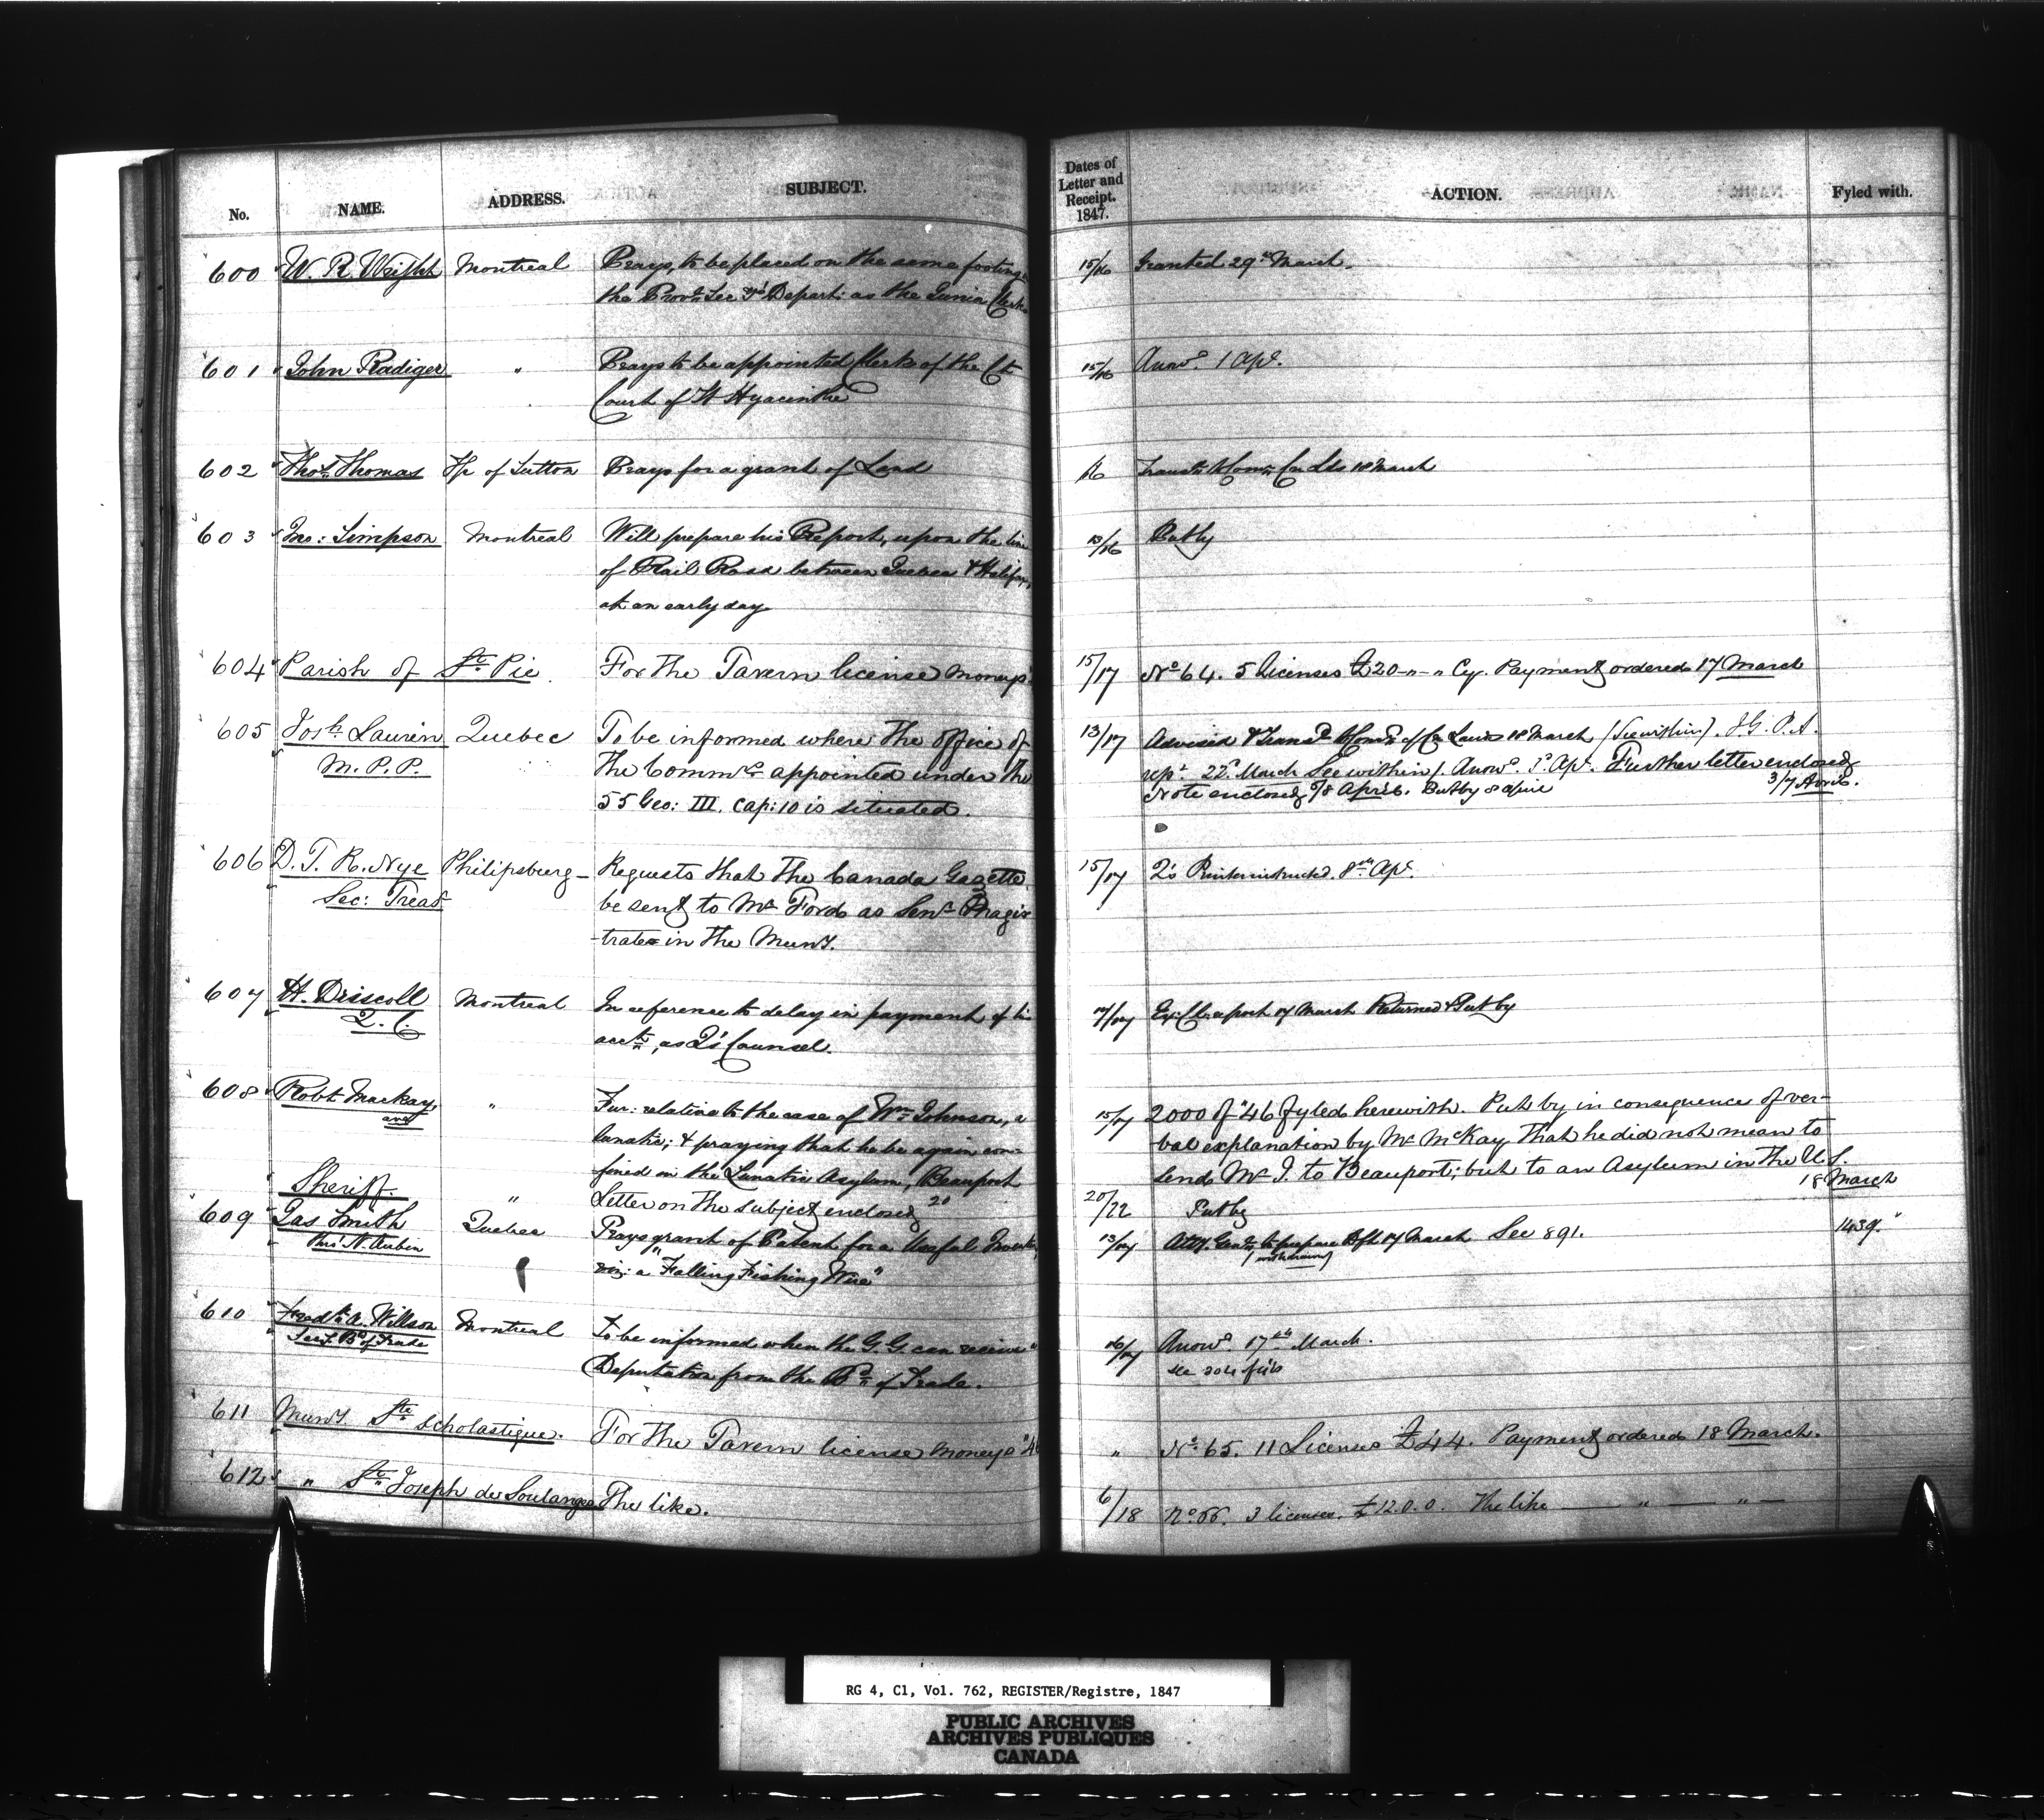 No. NAME. ADDRESS. SUBJECT. Dates of Letter and Receipt. 1847. ACTION. Fyled with.
600 W. R. Wright Montreal Prays, to be placed on the same footing in 15/16 Granted 29th March.
the Provl. Sec y's Depart: as the Junior Clerks
601 John Radiger " Prays to be appointed Clerk of the Ct. 15/16 Answd. 1 Apl.
Court of St Hyacinthe
602 Thos. Thomas Tp of Sutton Prays for a grant of Land /16 Transd. to Comr. Cn Lds 18 March
603 Jno: Simpson Montreal Will prepare his Report, upon the line 13/16 Put by
of Rail Road between Quebec & Halifax,
at an early day
604 Parish of St. Pie. For the Tavern license moneys 15/17 No. 64. 5 Licenses £20-"-" Cy. Payment ordered 17 March
605 Josh. Laurin Quebec To be informed where the office of 13/17 Advised & Transd. to Comr. of Cn Lands 18 March (See within). J.G. P.A.
M.P.P. the Commrs. appointed under the rept. 22d. March See within). Answd. 1st. Apl. Further letter enclosed 3/7 April.
55 Geo: III. Cap: 10 is situated. Note enclosed 7/8 April. Put by 8 April
606 D. T. R. Nye Philipsburg Requests that the Canada Gazette 15/17 Q's Printer instructed. 8th Apl.
Sec: Treasr be sent to Mr Ford as Senr. Magis-
-trate in the Muny.
607 H. Driscoll Montreal In reference to delay in payment of his 17/17 Ex. Cl. report 17 March Returned & Put by
Q.C. acct., as Q's Counsel.
608 Robt Mackay " Fur: relative to the case of Wm. Johnson, a 15/17 2000 of "46 fyled herewith. Put by in consequence of ver-
and lunatic; & praying that he be again con- bal explanation by Mr. McKay that he did not mean to
fined in the Lunatic Asylum, Beauport send Mr J. to Beauport; but to an Asylum in the U.S. 18 March
Sheriff. " Letter on the subject enclosed 20 20/22 Put by
609 Jas Smith Quebec Prays grant of Patent for a Useful Invention 13/17 Atty. Genl. to prepare Dft 17 March See 891. 1439.
thro' N. Aubin viz: a "Falling Fishing Wire" (withdrawn)
610 Fredk. A. Willson Montreal To be informed when the G. G. can receive a 16/17 Answd. 17th March.
Secy. Bd. of Trade Deputation from the Bd. of Trade.
611 Muny. Ste. Scholastique. For the Tavern license moneys "46 " No. 65. 11 Licenses £44. Payment ordered 18 March.
612 " St. Joseph de Soulanges The like. 6/18 No. 66. 3 licenses. £12.0.0. The like — " — " —
RG 4, C1, Vol. 762, REGISTER/Registre, 1847
PUBLIC ARCHIVES
ARCHIVES PUBLIQUES
CANADA